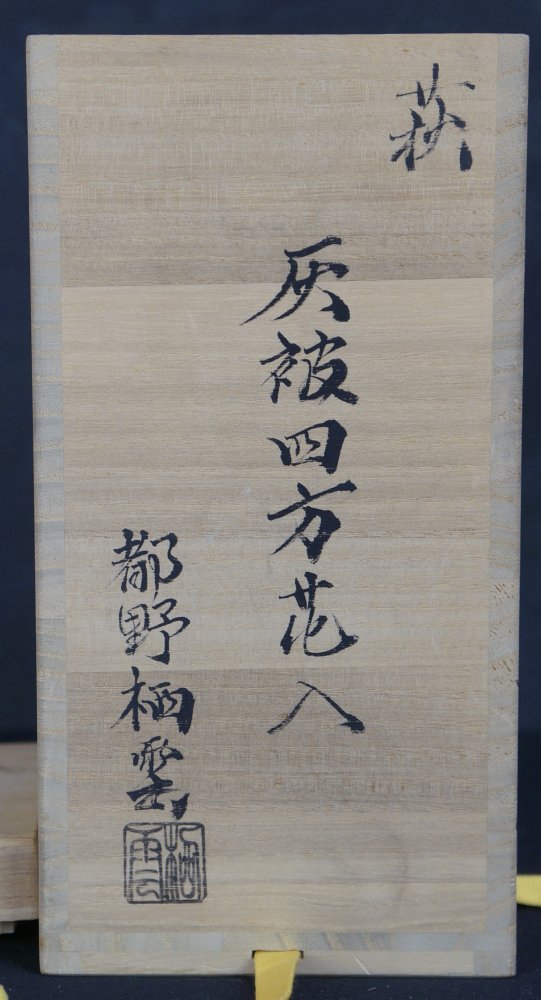 萩
灰被四方花入
都野栖雲